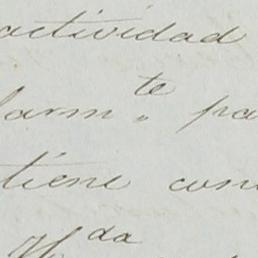 actividad
larm.te pa
tiene con
H.da